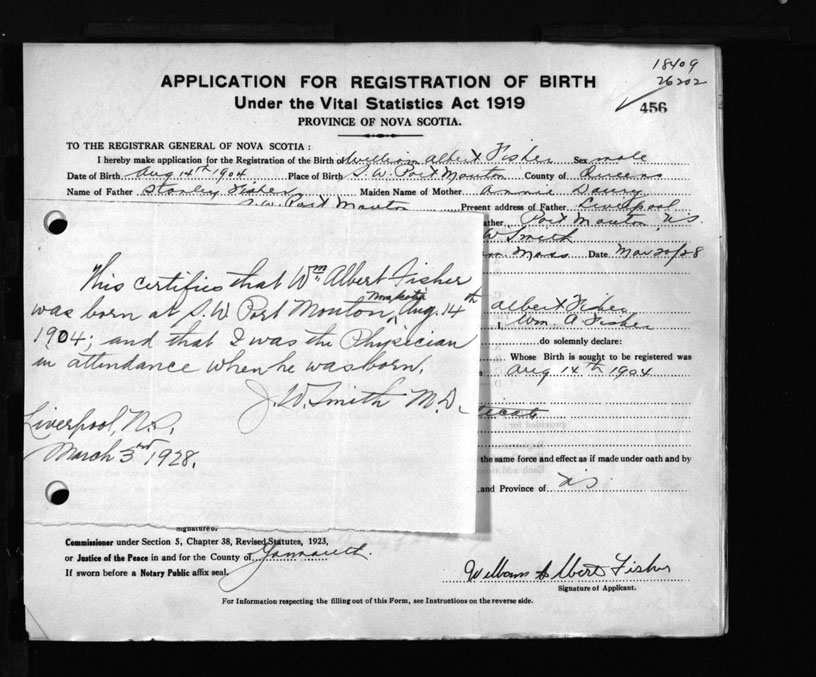 18409
26202
456
APPLICATION FOR REGISTRATION OF BIRTH
Under the Vital Statistics Act 1919
PROVINCE OF NOVA SCOTIA.
TO THE REGISTRAR GENERAL OF NOVA SCOTIA :
I hereby make application for the Registration of the Birth of William Albert Fisher Sex male
Date of Birth Aug 14th 1904 Place of Birth S.W. Port Mouton County of Queens
Name of Father Stanley Fisher Maiden Name of Mother Annie
S.W. Port Mouton Present address of Father Liverpool
ather, Port Mouton, N.S.
W Smith
Mass Date Mar 20/28
This certifies that Wm Albert Fisher
was born at S.W. Port Mouton, Aug. 14th
1904; and that I was the Physician
in attendance when he was born.
J. W. Smith M.D.
Liverpool, N.S.
March 3rd 1928.
Albert Fisher
I, Wm. A Fisher
do solemnly declare:
Whose Birth is sought to be registered was
Aug 14th 1904
ticate
the same force and effect as if made under oath and by
and Province of NS
Signature of.
Commissioner under Section 5, Chapter 38, Revised Statutes, 1923,
or Justice of the Peace in and for the County of Yarmouth.
If sworn before a Notary Public affix seal.
William Albert Fisher
Signature of Applicant.
For Information respecting the filling out of this Form, see Instructions on the reverse side.